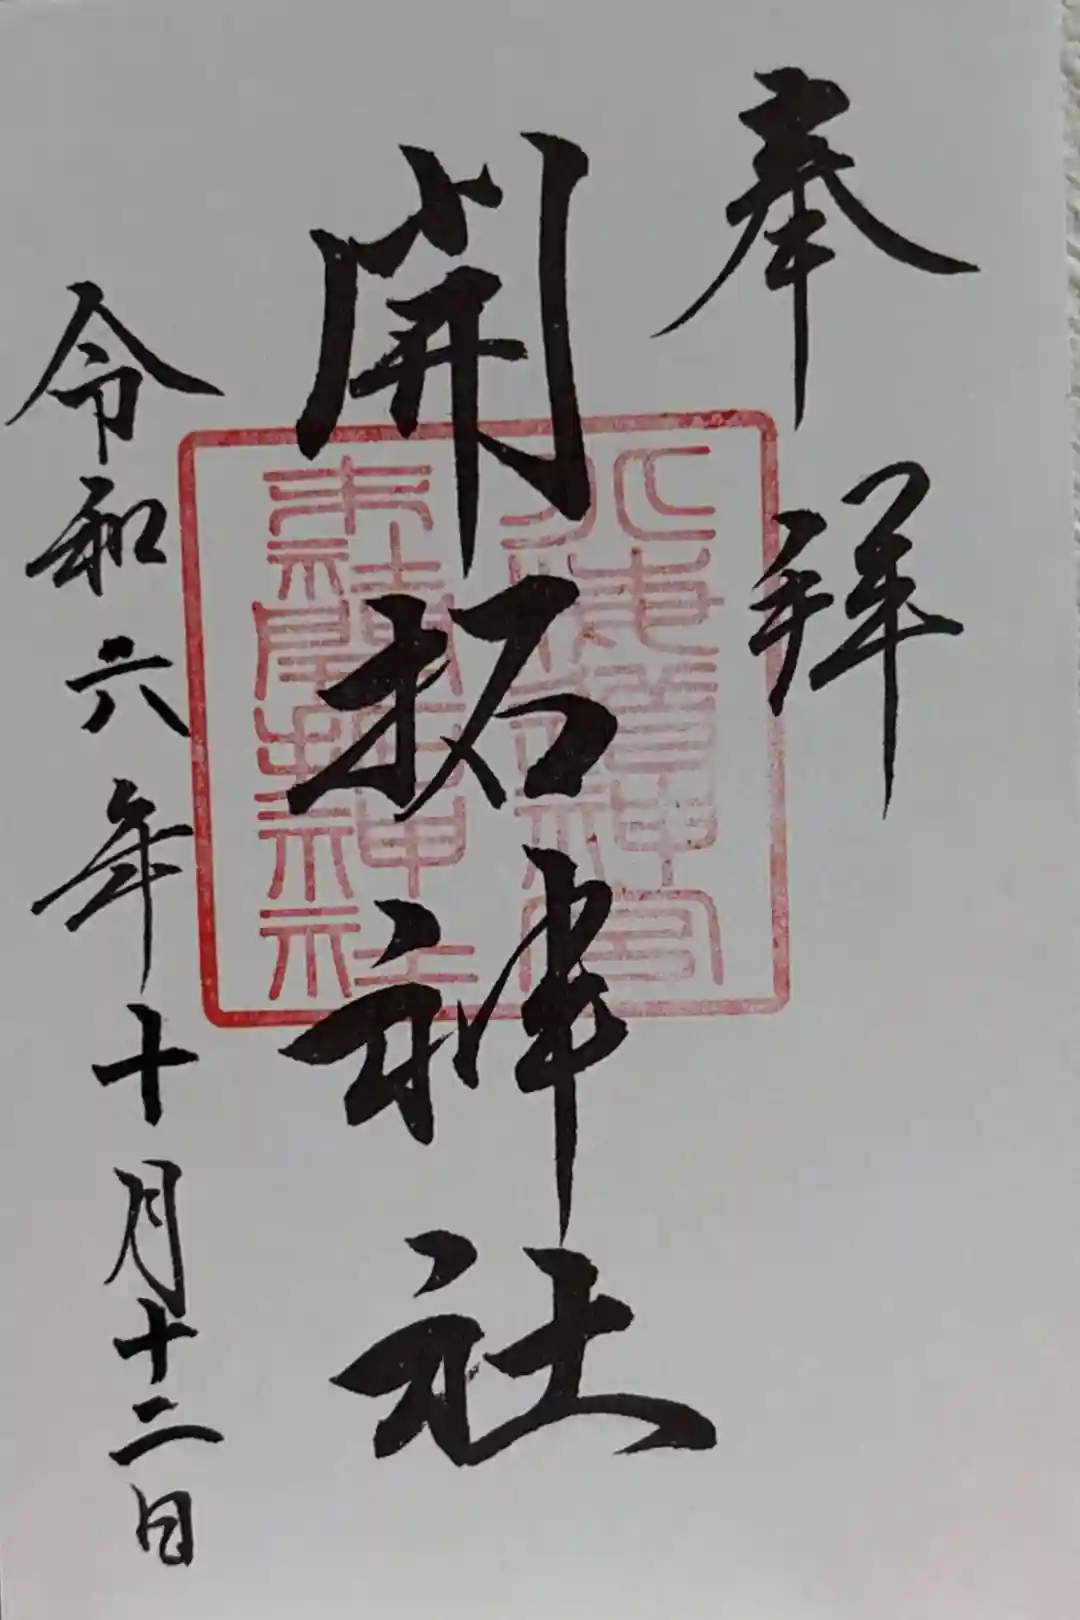 奉拝
開拓神社
北海道神宮
末社開拓神社
令和六年十月十二日